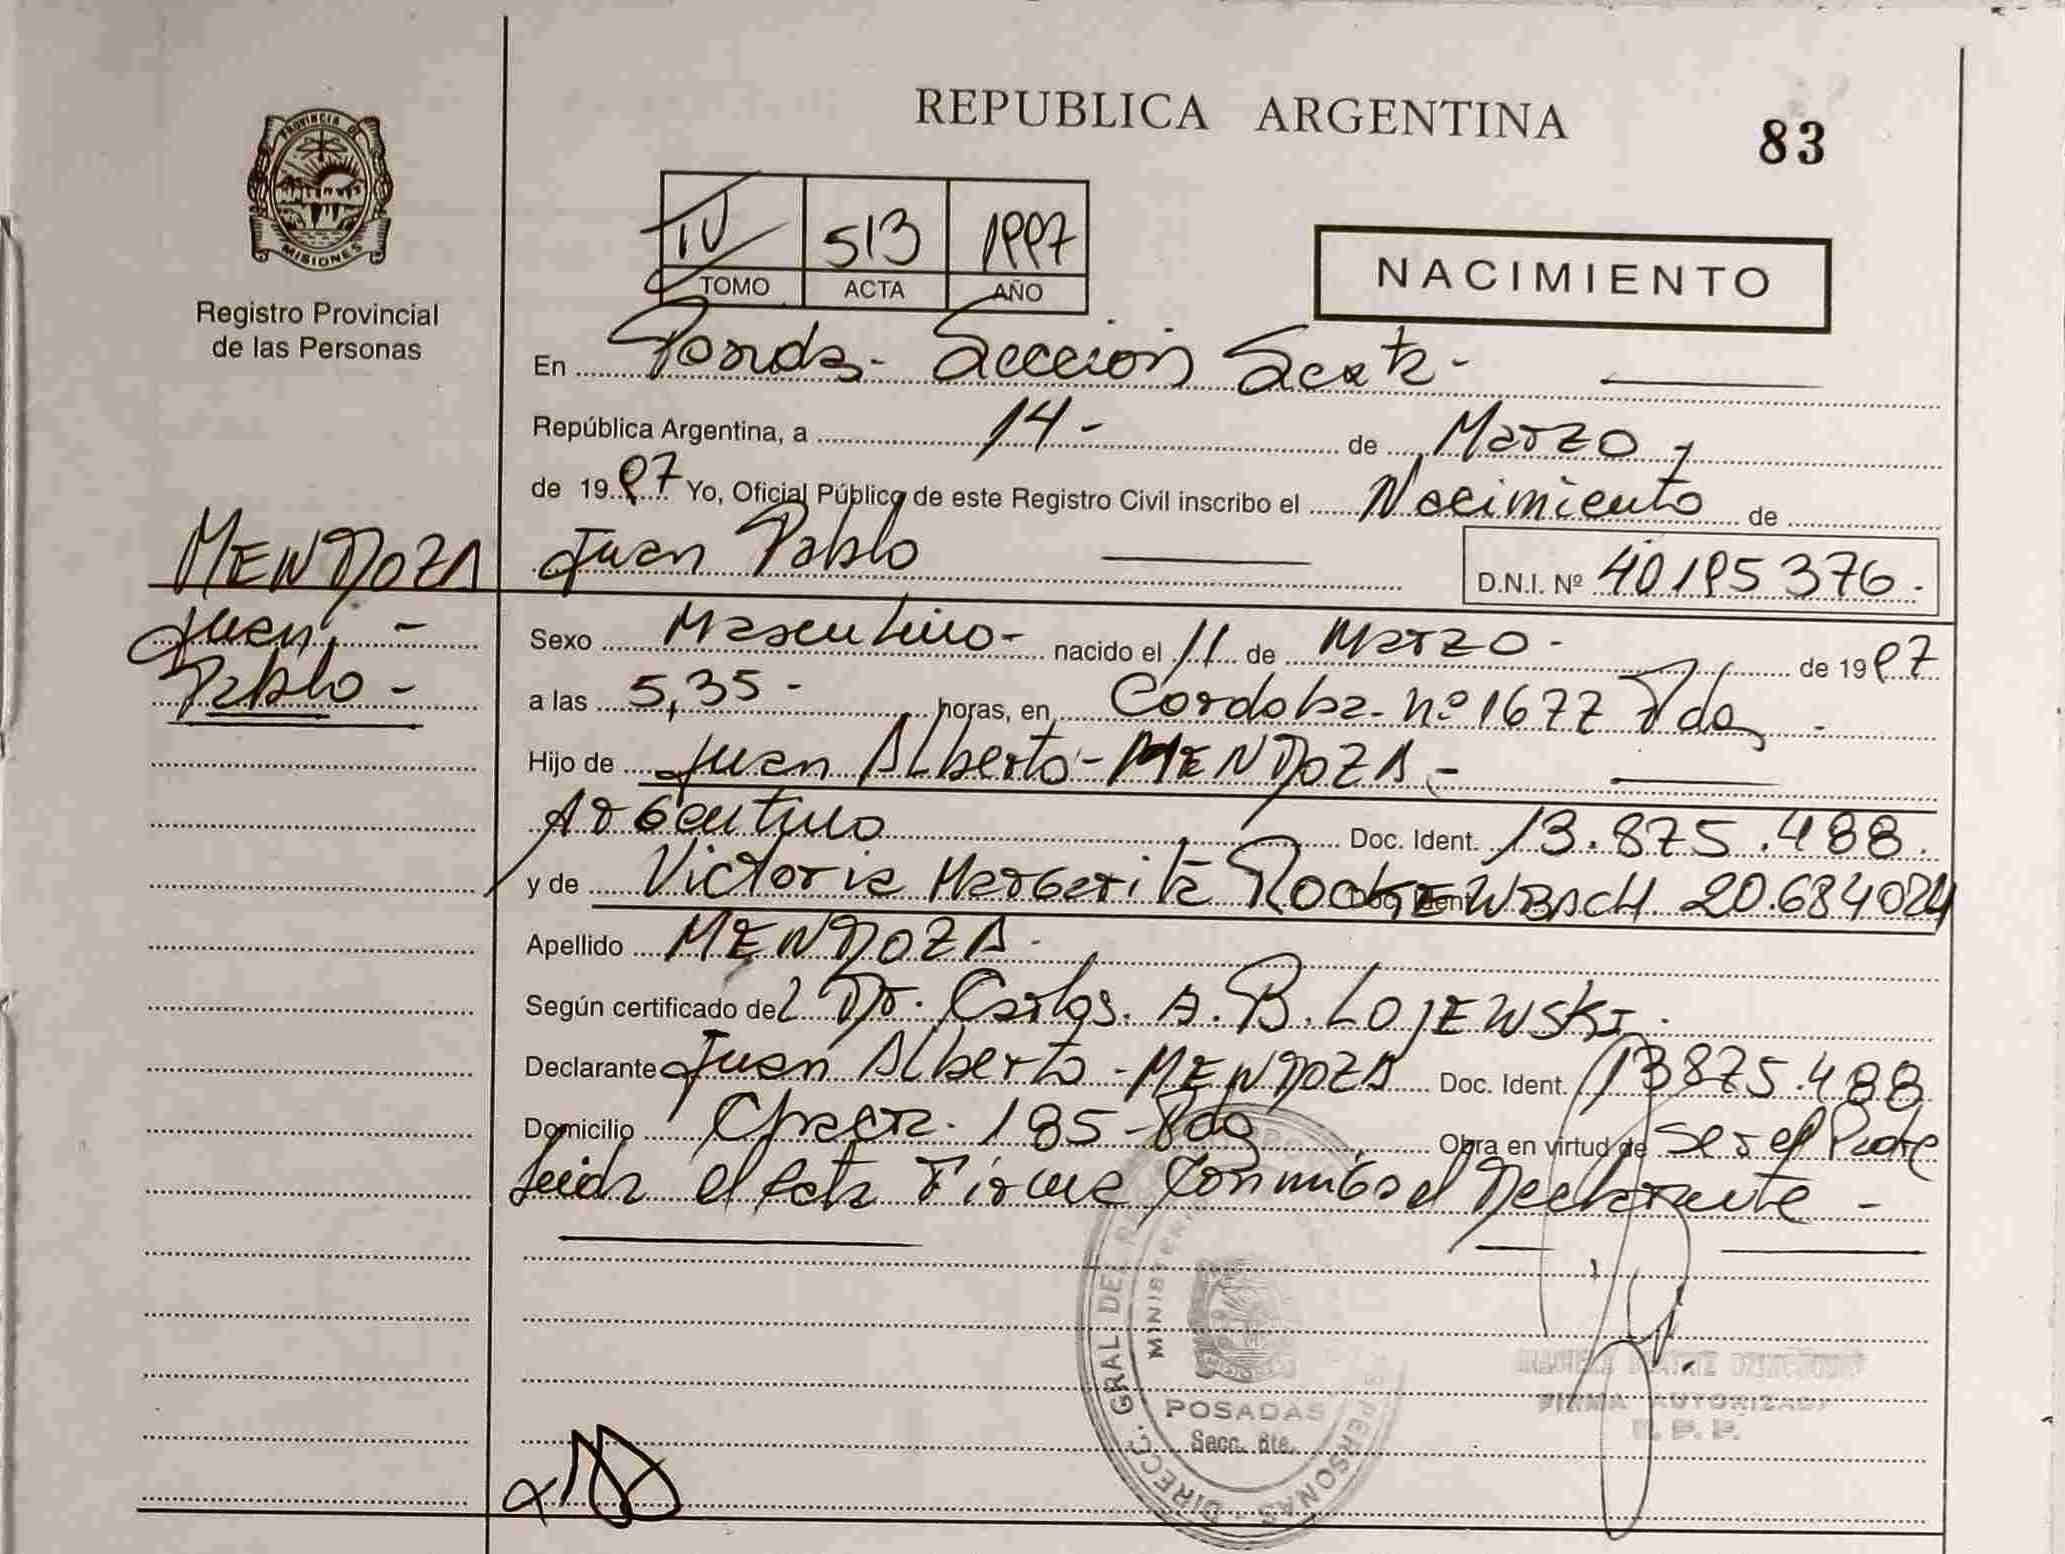 REPUBLICA ARGENTINA
83
PROVINCIA DE
MISIONES
Registro Provincial
de las Personas
IV 513 1997
TOMO ACTA AÑO
NACIMIENTO
En Posadas - Sección Sexta -
República Argentina, a 14 - de Marzo
de 1997 Yo, Oficial Público de este Registro Civil inscribo el Nacimiento de
MENDOZA
Juan -
Pablo -
Juan Pablo D.N.I. Nº 40195376.
Sexo Masculino - nacido el 11 de Marzo - de 1997
a las 5,35 - horas, en Cordoba - nº 1677 Pdas -
Hijo de Juan Alberto - MENDOZA -
Argentino Doc. Ident. 13.875.488.
y de Victoria Margarita Doc. Ident. 20.684024
Apellido MENDOZA -
Según certificado del Dr. Carlos. A. B. LOJEWSKI.
Declarante Juan Alberto - MENDOZA Doc. Ident. 13875.488
Domicilio 185 - Pdas Obra en virtud de Ser el Padre
Leida el Acta Firma Conmigo el Declarante -
DIRECC. GRAL DEL PERSONAS
POSADAS
Secc. 6ta.
FIRMA AUTORIZADA
R. P. P.